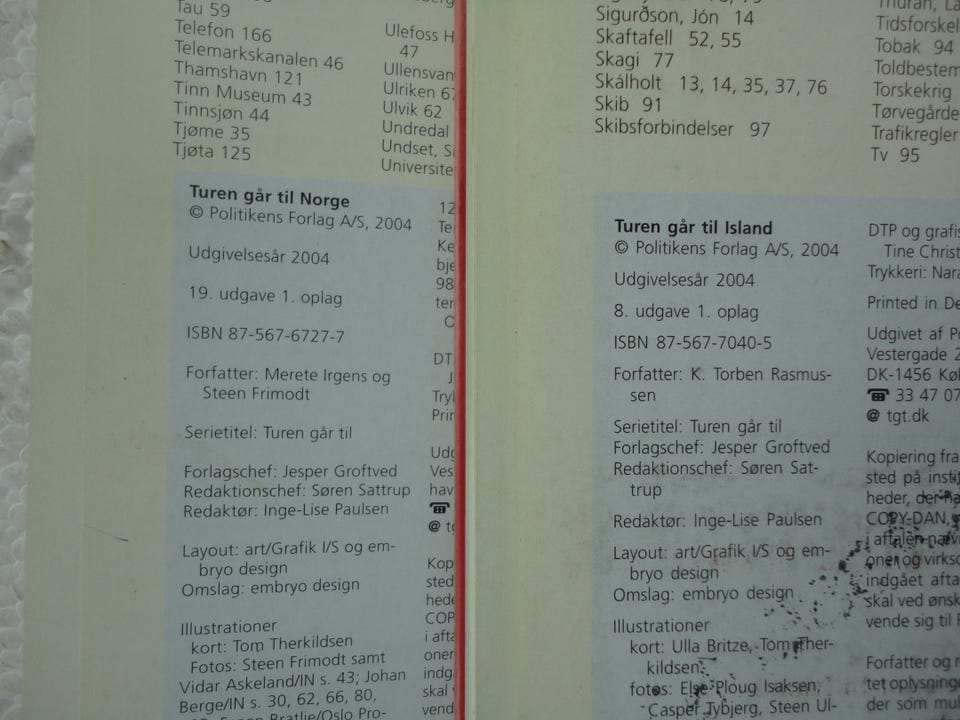 Tau 59
Telefon 166
Telemarkskanalen 46
Thamshavn 121
Tinn Museum 43
Tinnsjøn 44
Tjøme 35
Tjøta 125
Ulefoss H
47
Ullensvan
Ulriken 67
Ulvik 62
Undredal
Undset, Si
Universite
Turen går til Norge
© Politikens Forlag A/S, 2004
Udgivelsesår 2004
19. udgave 1. oplag
ISBN 87-567-6727-7
Forfatter: Merete Irgens og
Steen Frimodt
Serietitel: Turen går til
Forlagschef: Jesper Groftved
Redaktionschef: Søren Sattrup
Redaktør: Inge-Lise Paulsen
Layout: art/Grafik I/S og em-
bryo design
Omslag: embryo design
Illustrationer
kort: Tom Therkildsen
Fotos: Steen Frimodt samt
Vidar Askeland/IN s. 43; Johan
Berge/IN s. 30, 62, 66, 80,
12
Te
Ke
bje
98
ter
O
DT
J
Tryl
Prin
Udg
Ves
hav
☎
@ tg
Kop
sted
hede
COP
i afta
oner
indg
skal v
vend
Sigurðson, Jón 14
Skaftafell 52, 55
Skagi 77
Skálholt 13, 14, 35, 37, 76
Skib 91
Skibsforbindelser 97
Tidsforskel
Tobak 94
Toldbestem
Torskekrig
Tørvegårde
Trafikregler
Tv 95
Turen går til Island
© Politikens Forlag A/S, 2004
Udgivelsesår 2004
8. udgave 1. oplag
ISBN 87-567-7040-5
Forfatter: K. Torben Rasmus-
sen
Serietitel: Turen går til
Forlagschef: Jesper Groftved
Redaktionschef: Søren Sat-
trup
Redaktør: Inge-Lise Paulsen
Layout: art/Grafik I/S og em-
bryo design
Omslag: embryo design
Illustrationer
kort: Ulla Britze, Tom Ther-
kildsen
fotos: Else Ploug Isaksen,
Casper Tybjerg, Steen Ul-
DTP og grafis
Tine Christ
Trykkeri: Nara
Printed in De
Udgivet af Po
Vestergade 2
DK-1456 Køl
☎ 33 47 07
@ tgt.dk
Kopiering fra
sted på insti
heder, der ha
COPY-DAN,
i aftalen nævn
oner og virkso
indgået afta
skal ved ønsk
vende sig til
Forfatter og r
tet oplysninge
der som mul